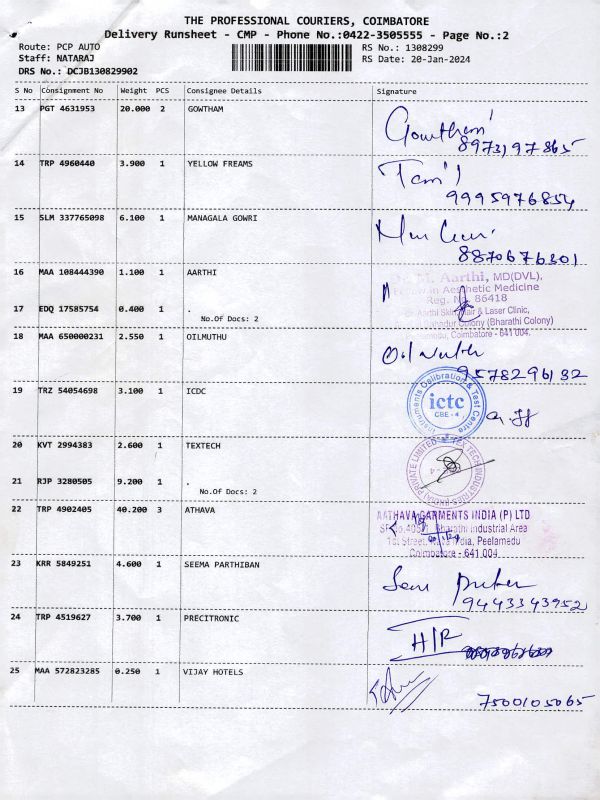 THE PROFESSIONAL COURIERS, COIMBATORE
Delivery Runsheet - CMP - Phone No.:0422-3505555 - Page No.:2
Route: PCP AUTO RS No.: 1308299
Staff: NATARAJ RS Date: 20-Jan-2024
DRS No.: DCJB130829902
S No Consignment No Weight PCS Consignee Details Signature
13 PGT 4631953 20.000 2 GOWTHAM
Gowtham
8973197865
14 TRP 4960440 3.900 1 YELLOW FREAMS
9995976854
15 SLM 337765098 6.100 1 MANAGALA GOWRI
8870676301
16 MAA 108444390 1.100 1 AARTHI
Dr. M. Aarthi, MD(DVL),
Aesthetic Medicine
Reg. No. 86418
17 EDQ 17585754 0.400 1 .
Aarthi Skin Hair & Laser Clinic,
No.Of Docs: 2
Colony (Bharathi Colony)
Coimbatore - 641 004.
18 MAA 650000231 2.550 1 OILMUTHU
9578296132
19 TRZ 54054698 3.100 1 ICDC
Instruments Calibration & Test Centre
ictc
CBE - 4
20 KVT 2994383 2.600 1 TEXTECH
TEX TECH INDUSTRIES (INDIA) PRIVATE LIMITED
21 RJP 3280505 9.200 1 .
No.Of Docs: 2
22 TRP 4902405 40.200 3 ATHAVA
AATHAVA GARMENTS INDIA (P) LTD
Bharathi Industrial Area
1st Street, India, Peelamedu
Coimbatore - 641 004
23 KRR 5849251 4.600 1 SEEMA PARTHIBAN
9443343952
24 TRP 4519627 3.700 1 PRECITRONIC
H/R
25 MAA 572823285 0.250 1 VIJAY HOTELS
7500105065